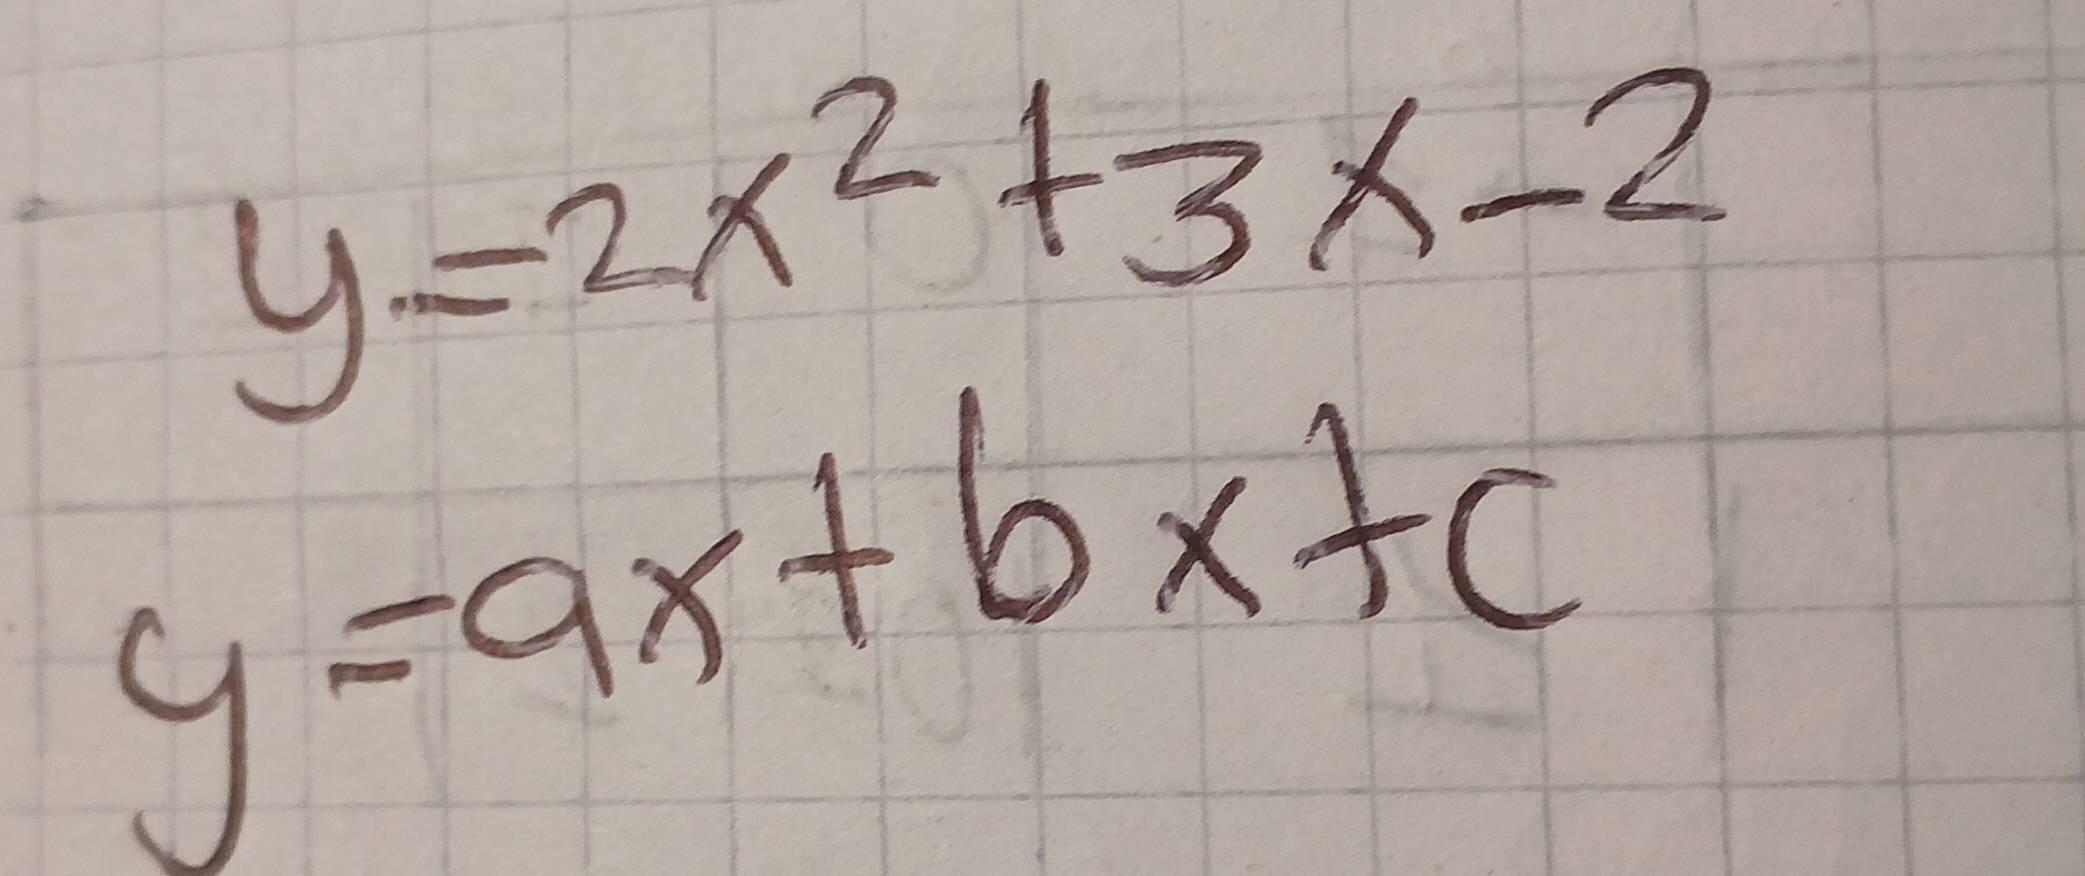 y=2x²+3x-2
y=ax+bx+c